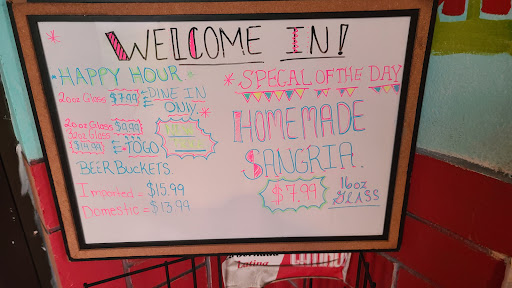 WELCOME IN!
HAPPY HOUR
20oz Glass $7.99 DINE IN ONLY
20oz Glass $9.99
32oz Glass
$14.99 TOGO
BEER BUCKETS
Imported = $15.99
Domestic = $13.99
SPECAL OF THE DAY
HOMEMADE
SANGRIA.
$7.99 16oz GLASS
Latina